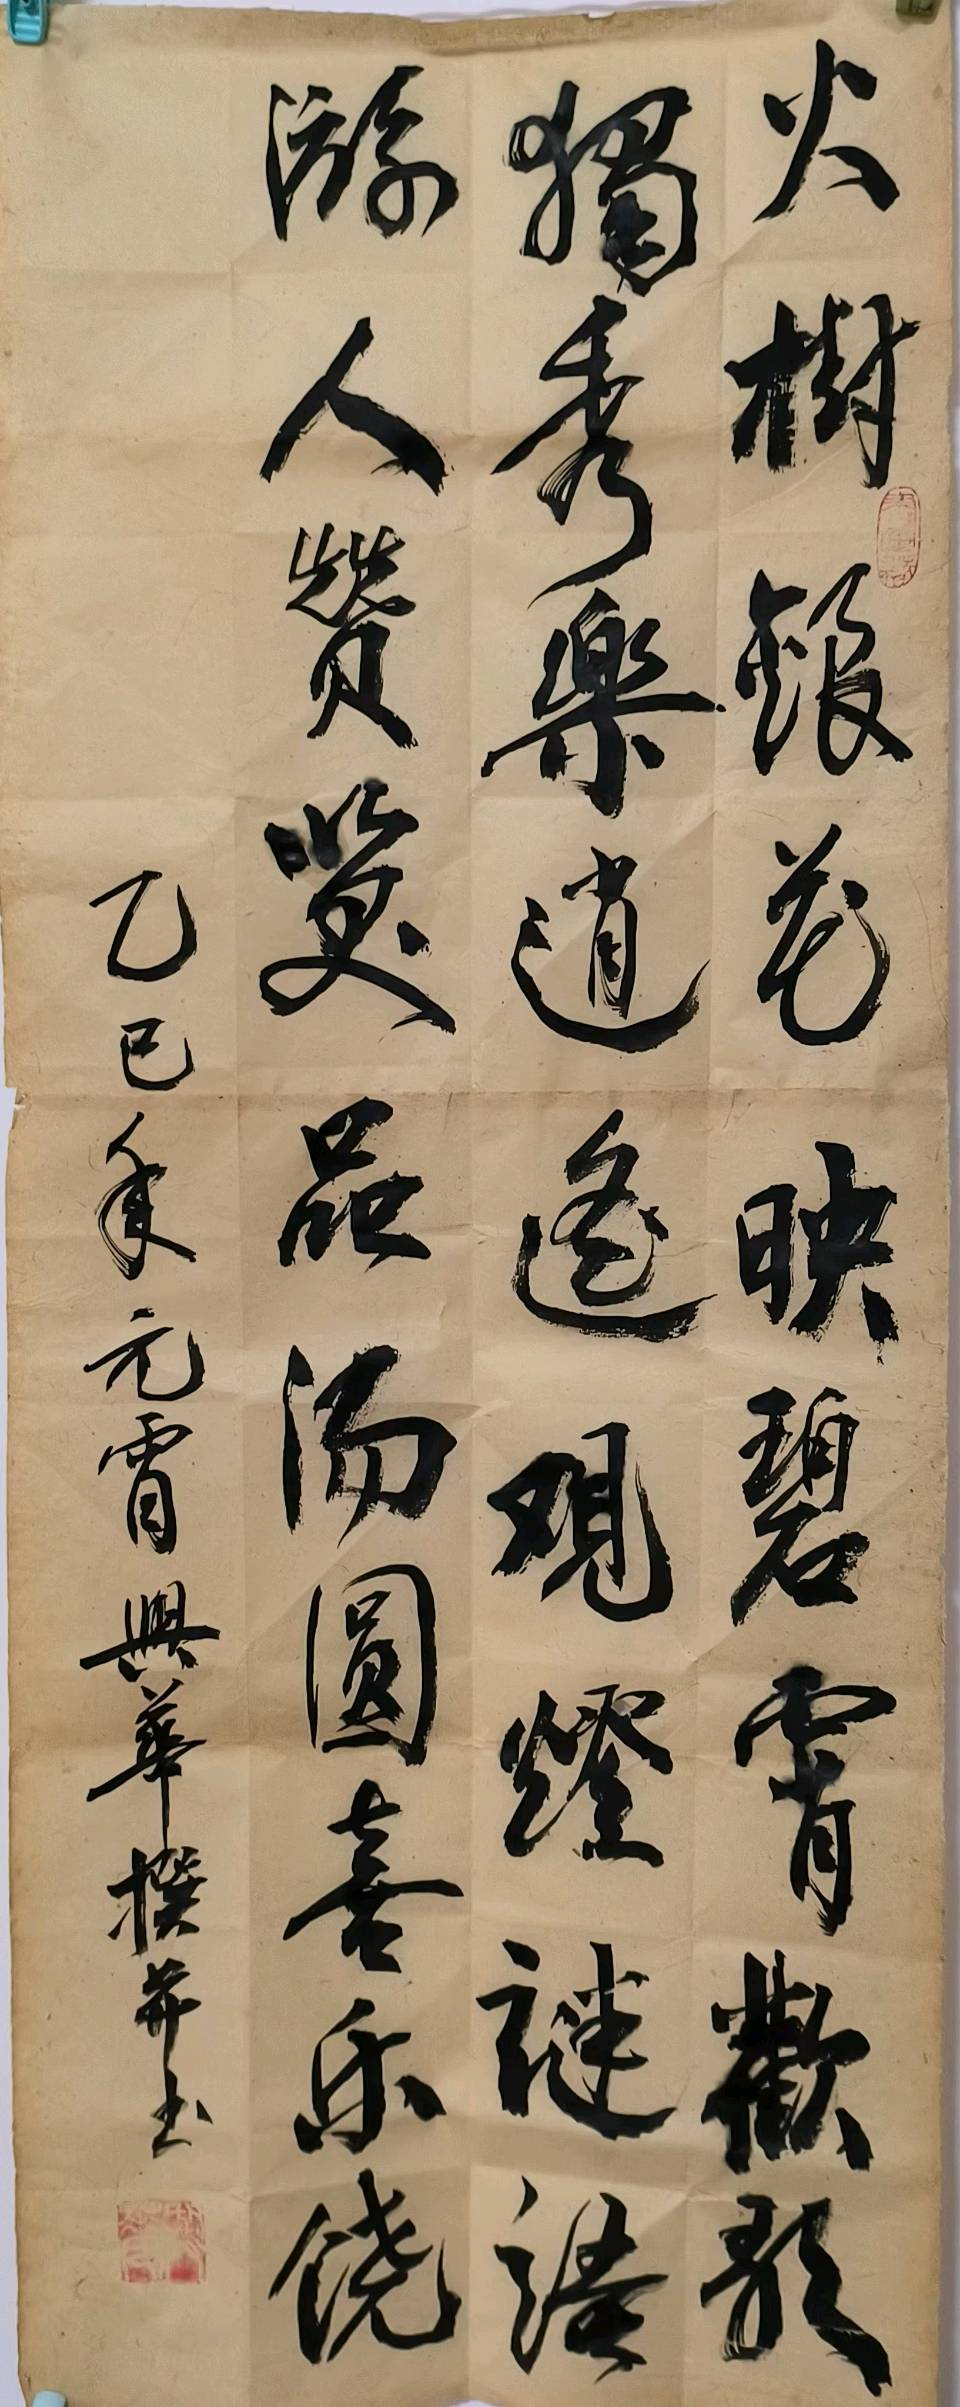 火樹銀花映碧霄歡歌
獨秀樂逍遙观燈謎語
游人贊奖品湯圓喜乐饶
乙巳年元宵興華撰并书